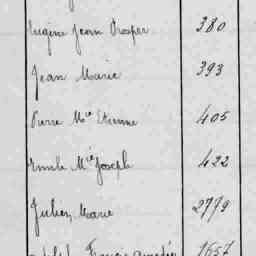 Eugène Jean Prosper 380
Jean Marie 393
Pierre Mie Etienne 405
Emile Mie Joseph 422
Julien Marie 2779
1657